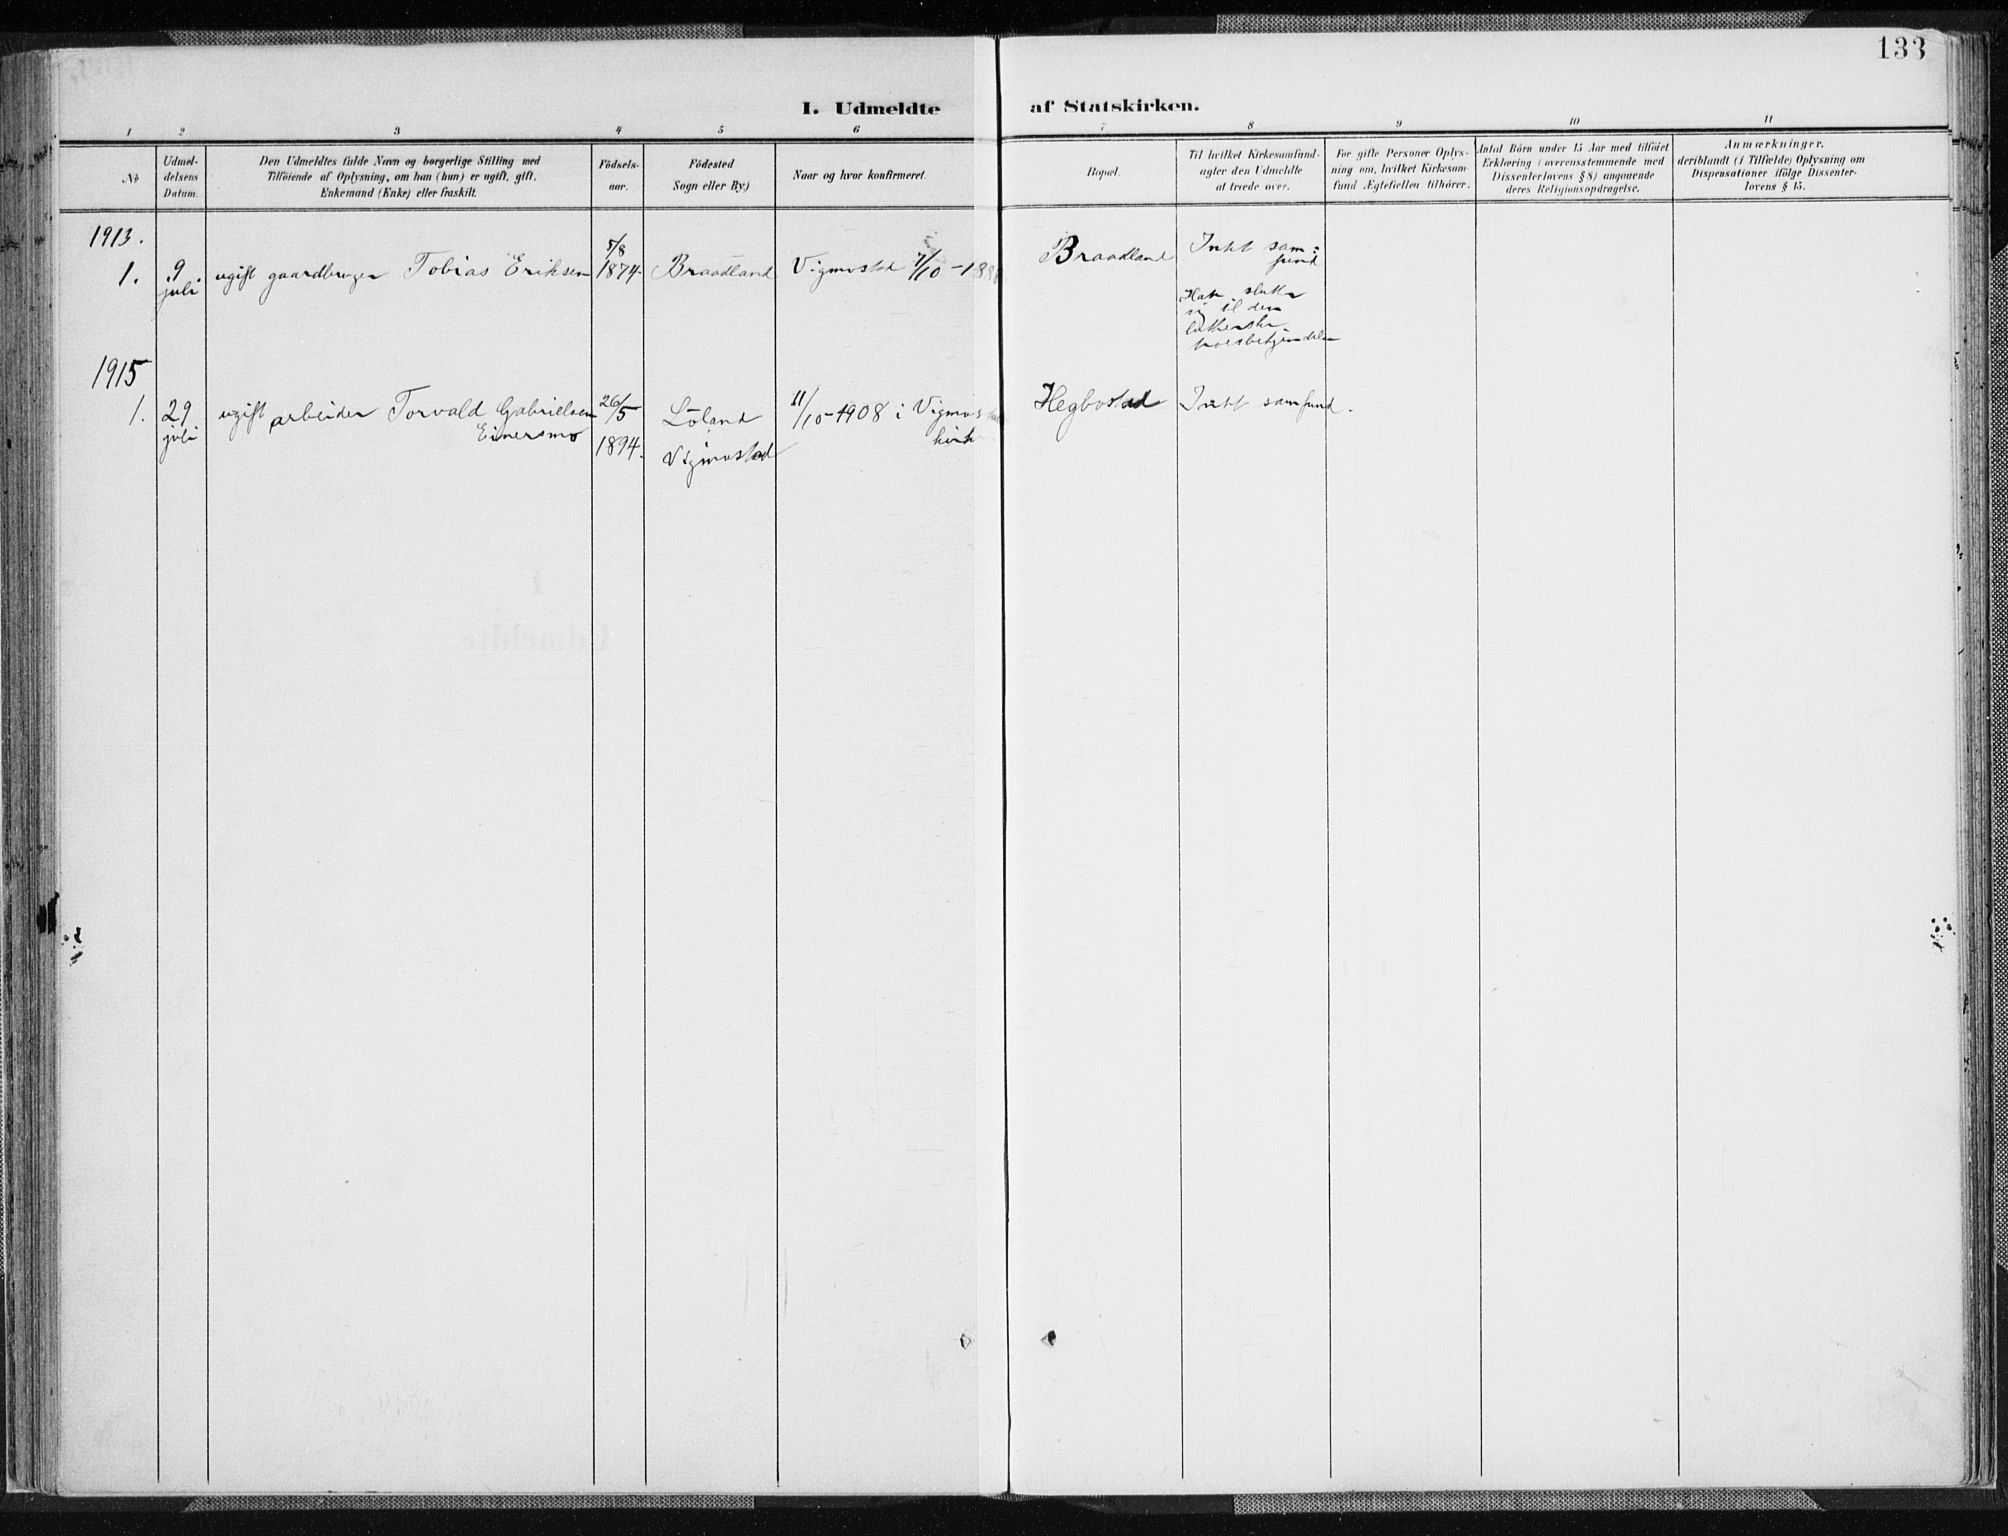 133
I. Udmeldte af Statskirken.
1 2 3 4 5 6 7 8 9 10 11
No
Udmel-
delsens
Datum.
Den Udmeldtes fulde Navn og borgerlige Stilling med
Tilföiende af Oplysning, om han (hun) er ugift, gift,
Enkemand (Enke) eller fraskilt.
Födsels-
aar.
Födested
Sogn eller By)
Naar og hvor konfirmeret.
Bopæl.
Til hvilket Kirkesamfund-
agter den Udmeldte
at træde over.
For gifte Personer Oplys-
ning om, hvilket Kirkesam-
fund Ægtefællen tilhörer.
Antal Börn under 15 Aar med tilföiet
Erklæring (overensstemmende med
Dissenterlovens § 8) angaaende
deres Religionsopdragelse.
Anmærkninger,
deriblandt (i Tilfælde) Oplysning om
Dispensationer ifölge Dissenter-
lovens § 15.
1913.
1.
9
juli
ugift gaardbruger Tobias Eriksen
5/8
1874
Braadland
Vigmostad 7/10-1888
Braadland
Intet sam-
fund
slutte
sig til den
lutherske
1915
1.
29
juli
ugift arbeider Torvald Gabrielsen
Einersmo
26/5
1894.
Löland
Vigmostad
11/10-1908 i Vigmostad
kirke
Hegbostad
Intet samfund.